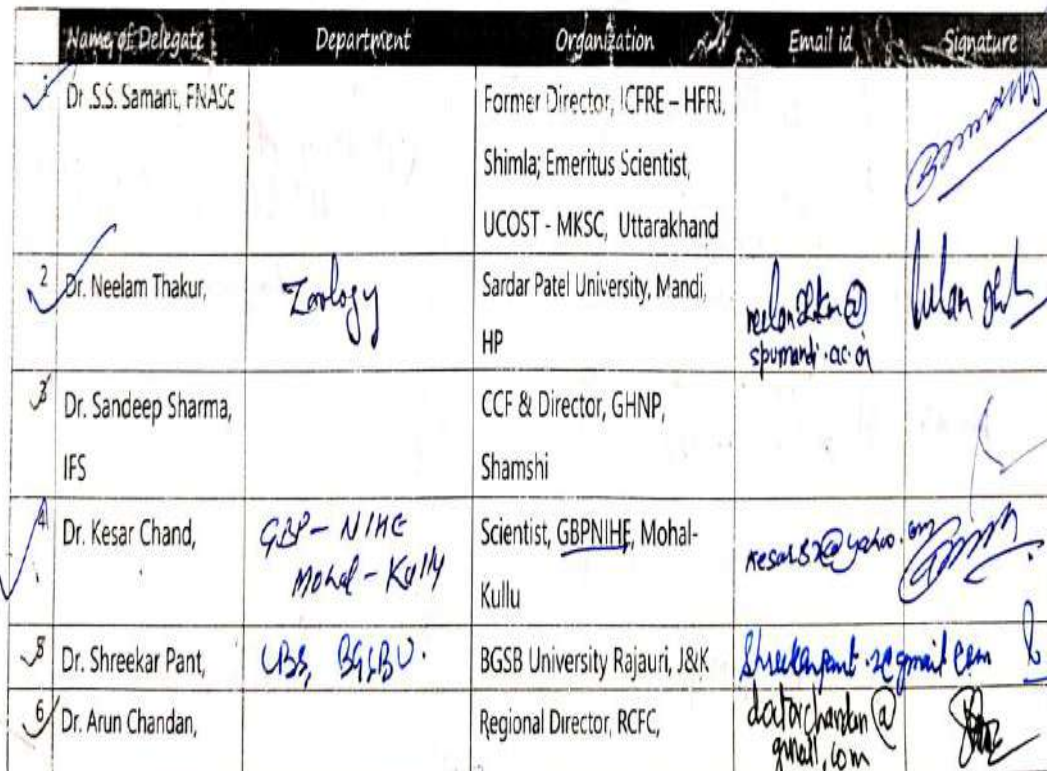 Name of Delegate Department Organization Email id Signature
Dr .S.S. Samant, FNASc Former Director, ICFRE – HFRI,
Shimla; Emeritus Scientist,
UCOST - MKSC, Uttarakhand
2 Dr. Neelam Thakur, Zoology Sardar Patel University, Mandi,
HP
spumandi.ac.in
3 Dr. Sandeep Sharma, CCF & Director, GHNP,
IFS Shamshi
4 Dr. Kesar Chand, GBP - NIHE Scientist, GBPNIHE, Mohal-
Mohal - Kully Kullu
5 Dr. Shreekar Pant, BGSBU. BGSB University Rajauri, J&K
6 Dr. Arun Chandan, Regional Director, RCFC, doctorchandan@
gmail.com